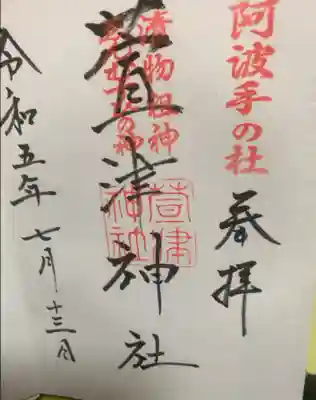 阿波手の杜
奉拝
漬物祖神
萱津神社
萱津
神社
令和五年 七月十三日